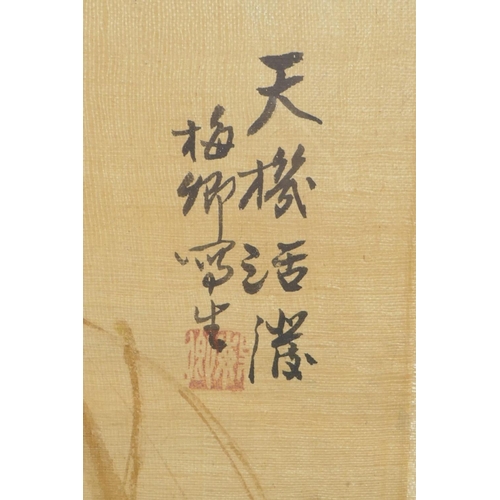 天機活潑
梅卿寫生